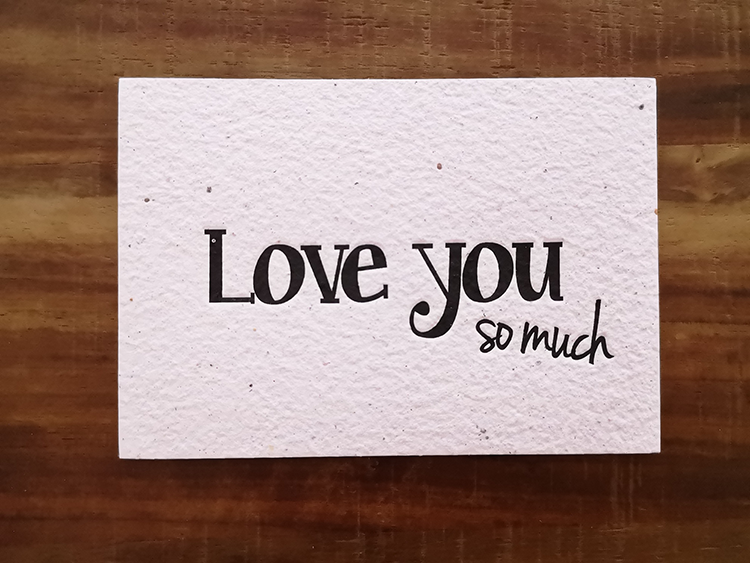 Love you
so much